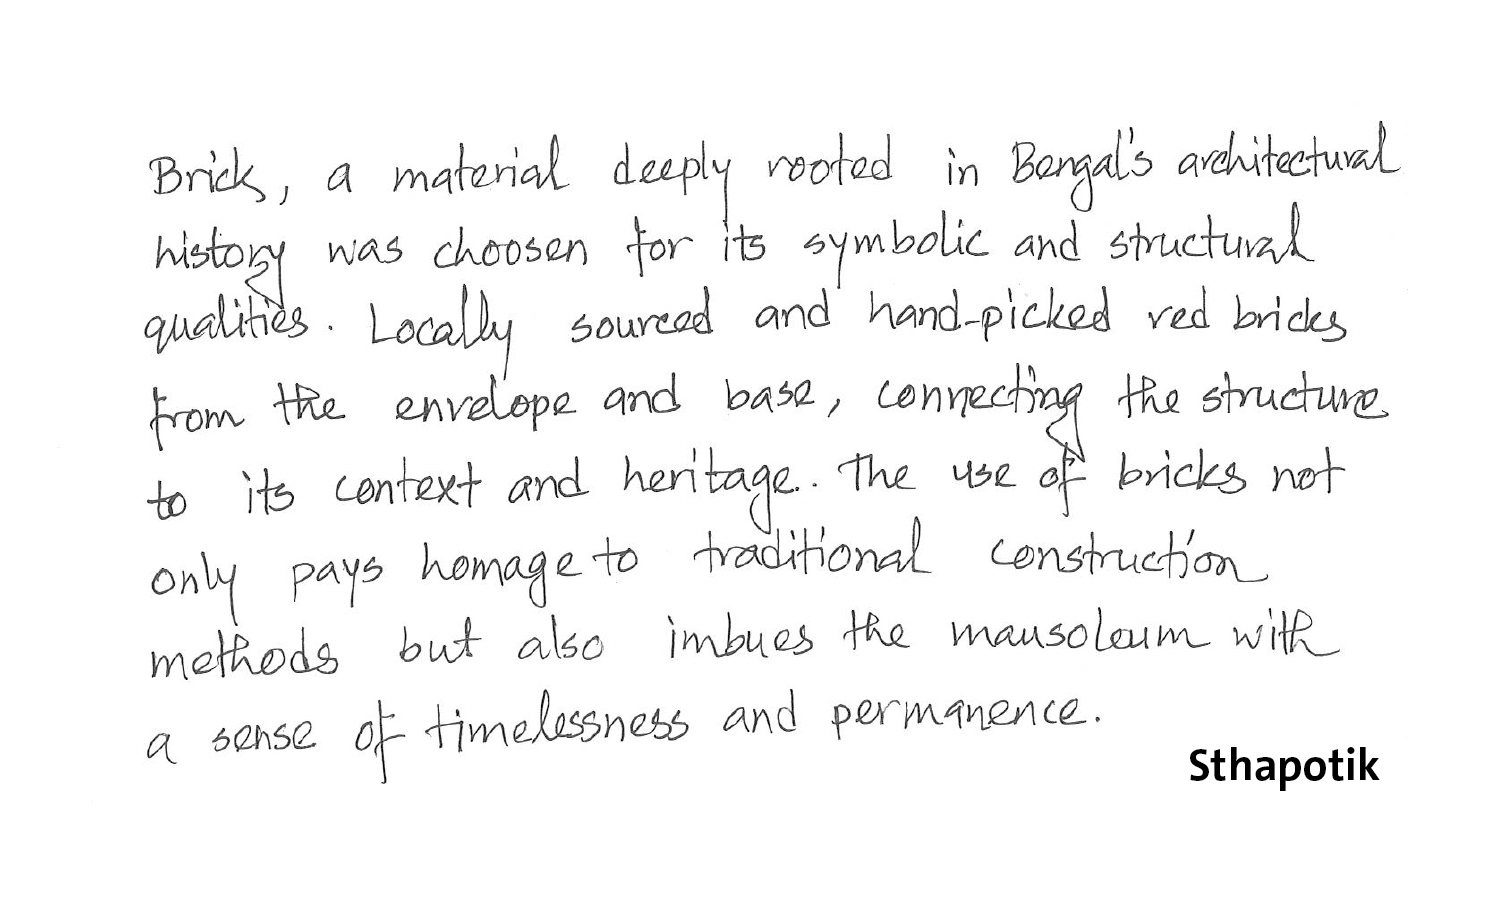 Brick, a material deeply rooted in Bengal's architectural
history was choosen for its symbolic and structural
qualities. Locally sourced and hand-picked red bricks
from the envelope and base, connecting the structure
to its context and heritage. The use of bricks not
only pays homage to traditional construction
methods but also imbues the mausoleum with
a sense of timelessness and permanence.
Sthapotik